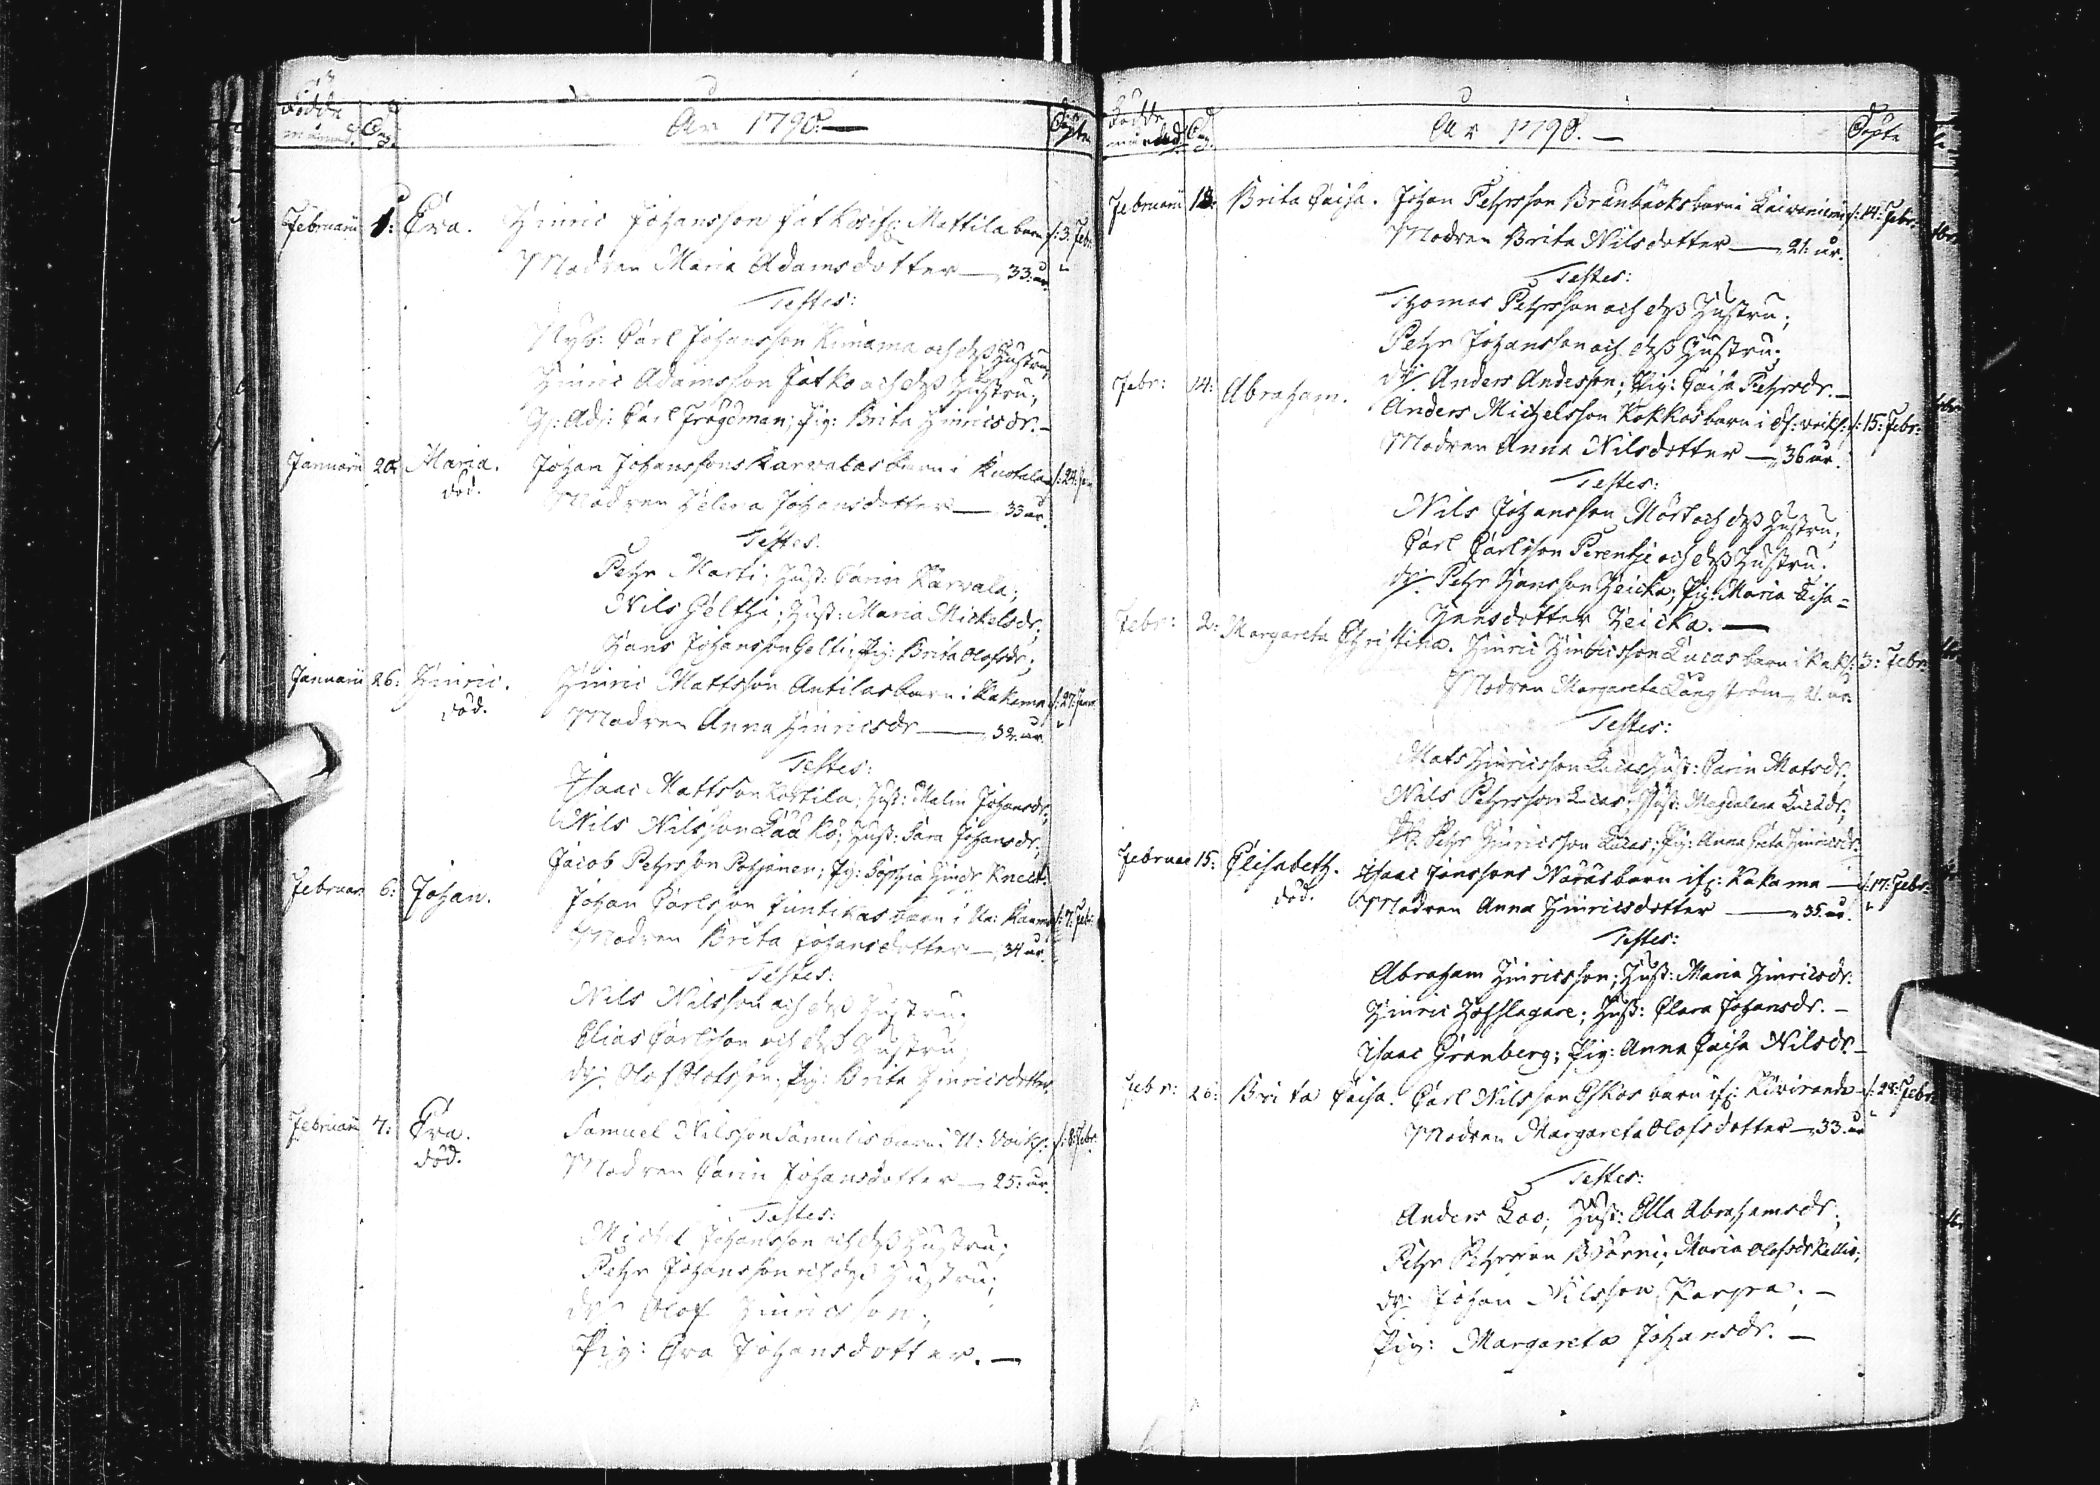 Födde månad. Dag. År 1790.— Döpte
Februarii 1: Eva. Hinric Johansson barn d: 3: Febr:
Modren Maria Adamsdotter — 33. år.
Testes:
Nyb: Carl Johansson Kimama och dess Hustru,
Hinric Adamsson Jatko och dess Hustru,
Carl Frögdman; Pig: Brita Hinricsdr.—
Januarii 20: Maria. Johan Johanssons Karvalas barn i d: 24: Jan
död. Modren Helena Johansdotter — 33 år.
Testes:
Pehr Marti; Hust: Carin Karvala;
Nils; Hust: Maria Mickelsdr;
Hans Johansson; Pig: Brita Olofsdr;
Januarii 26: Hinric. Hinric Mattsson Antilas barn i Kakama d: 27: Janu
död. Modren Anna Hinricsdr — 32. år.
Testes:
Isaac Mattsson; Hust: Malin Johansdr;
Nils Nilsson; Hust: Sara Johansdr;
Jacob Pehrsson Pohjanen; Pig: Sophia Hindr
Februar 6: Johan. Johan Carlsson barn i d: 7: Febr:
Modren Brita Johansdotter — 34 år.
Testes:
Nils Nilsson och dess Hustru;
Elias Carlsson och dess Hustru,
dg: Olof Olofsson; Pig: Brita Hinricsdotter.
Februarii 7: Eva. Samuel Nilsson barn i d: 8: Febr.
död. Modren Carin Johansdotter — 25: år.
Testes:
Michel Johansson och dess Hustru;
Pehr Johansson och dess Hustru;
dg: Olof Hinricsson;
Pig: Eva Johansdotter.—
Födde månad. Dag. År 1790.— Döpte
Februarii 13: Brita Caisa. Johan Pehrsson barn i d: 14: Febr:
Modren Brita Nilsdotter — 21: år.
Testes:
Thomas Pehrsson och dess Hustru;
Pehr Johansson och dess Hustru;
dg: Anders Andersson; Pig: Caisa Pehrsdr.—
Febr: 14: Abraham. Anders Michelsson Kokkos barn i d: 15: Febr:
Modren Anna Nilsdotter — 36 år.
Testes:
Nils Johansson Mört och dess Hustru;
Carl Carlsson och dess Hustru.
dg: Pehr Hansson Heicka; Pig: Maria Lisa=
Hansdotter Heicka.—
Febr: 2: Margareta Christina. Hinric Hinricsson Lucas barn i d: 3: Febr:
Modren Margareta Långström 21. år.
Testes:
Mats Hinricsson Lucas; Hust: Carin Matsdr,
Nils Pehrsson Lucas; Hust: Magdalena
Pehr Hinricsson Lucas; Pig: Anna Greta Hinricsdr—
Februar 15: Elisabeth. Isaac Janssons barn if: Kakama — d: 17: Febr:
död. Modren Anna Hinricsdotter — 35. år.
Testes:
Abraham Hinricsson; Hust: Maria Hinricsdr.
Hinric Hofslagare; Hust: Clara Johansdr.—
Isaac Granberg; Pig: Anna Caisa Nilsdr.—
Febr: 26: Brita Caisa. Carl Nilsson barn if: Kiviranda d: 28: Febr:
Modren Margareta Olofsdotter — 33. år
Testes:
Anders Lao; Hust: Ella Abrahamsdr;
Pehr Pehrsson Björni; Maria Olofsdr
dg: Johan Nilsson Karpra.—
Pig: Margareta Johansdr.—